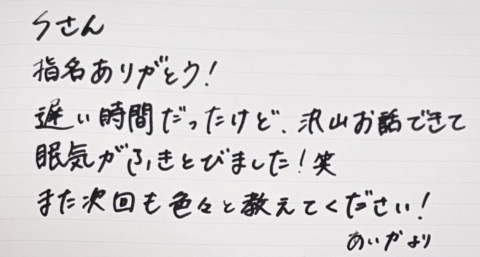 Sさん
指名ありがとう!
遅い時間だったけど、沢山お話できて
眠気がふきとびました!笑
また次回も色々と教えてください!
あいかより